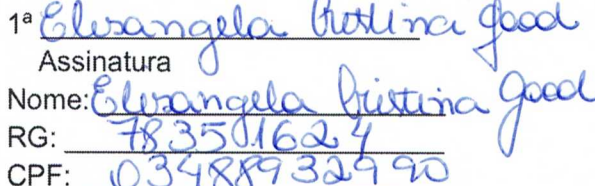 1ª Elisangela Cristina Good
Assinatura
Nome: Elisangela Cristina Good
RG: 783501624
CPF: 03488932990